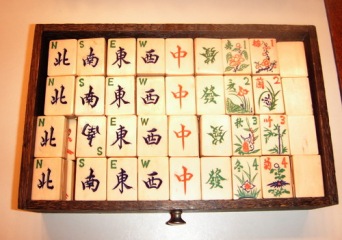 N 北 S 南 E 東 W 西 中 發 1 1
N 北 S 南 E 東 W 西 中 發 2 2
N 北 S 南 E 東 W 西 中 發 3 3
N 北 S 南 E 東 W 西 中 發 4 4